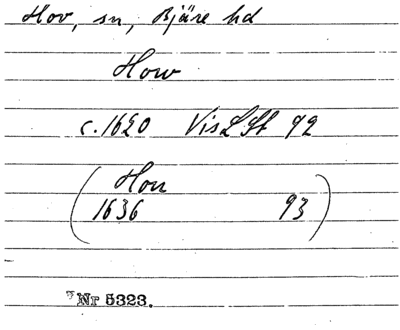 Hov, sn, Bjäre hd
How
c. 1620 VisLSt 92
(Hou
1636 93)
Nr 5323.